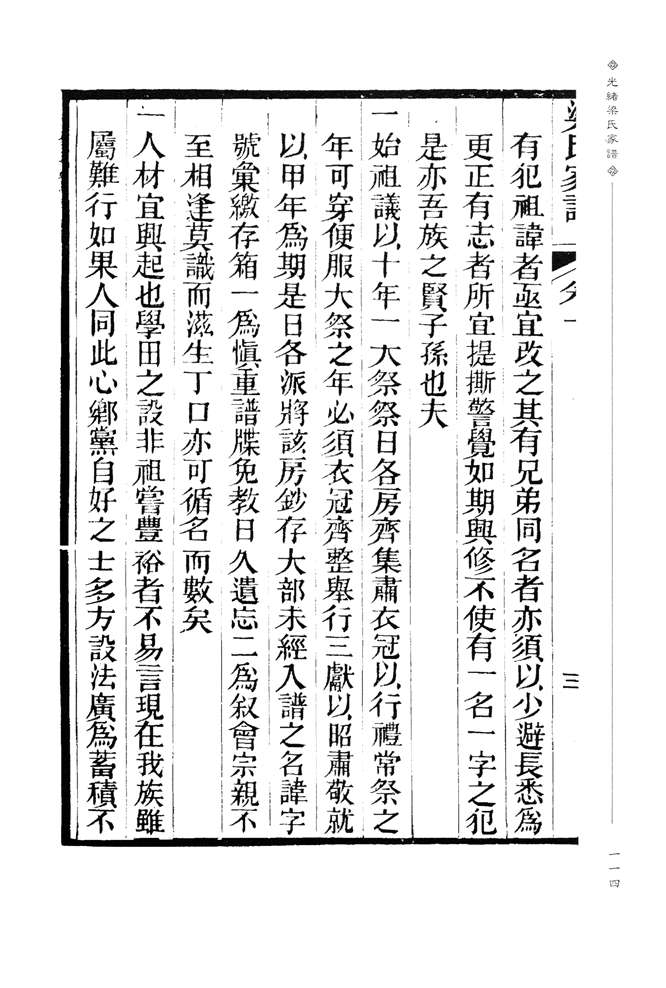 光緒梁氏家譜
一一四
梁氏家譜 卷一 三
有犯祖諱者亟宜改之其有兄弟同名者亦須以少避長悉爲
更正有志者所宜提撕警覺如期興修不使有一名一字之犯
是亦吾族之賢子孫也夫
一始祖議以十年一大祭祭日各房齊集肅衣冠以行禮常祭之
年可穿便服大祭之年必須衣冠齊整舉行三獻以昭肅敬就
以甲年爲期是日各派將該房鈔存大部未經入譜之名諱字
號彙繳存箱一爲愼重譜牒免教日久遺忘二爲叙會宗親不
至相逢莫識而滋生丁口亦可循名而數矣
一人材宜興起也學田之設非祖嘗豐裕者不易言現在我族雖
屬難行如果人同此心鄉黨自好之士多方設法廣爲蓄積不